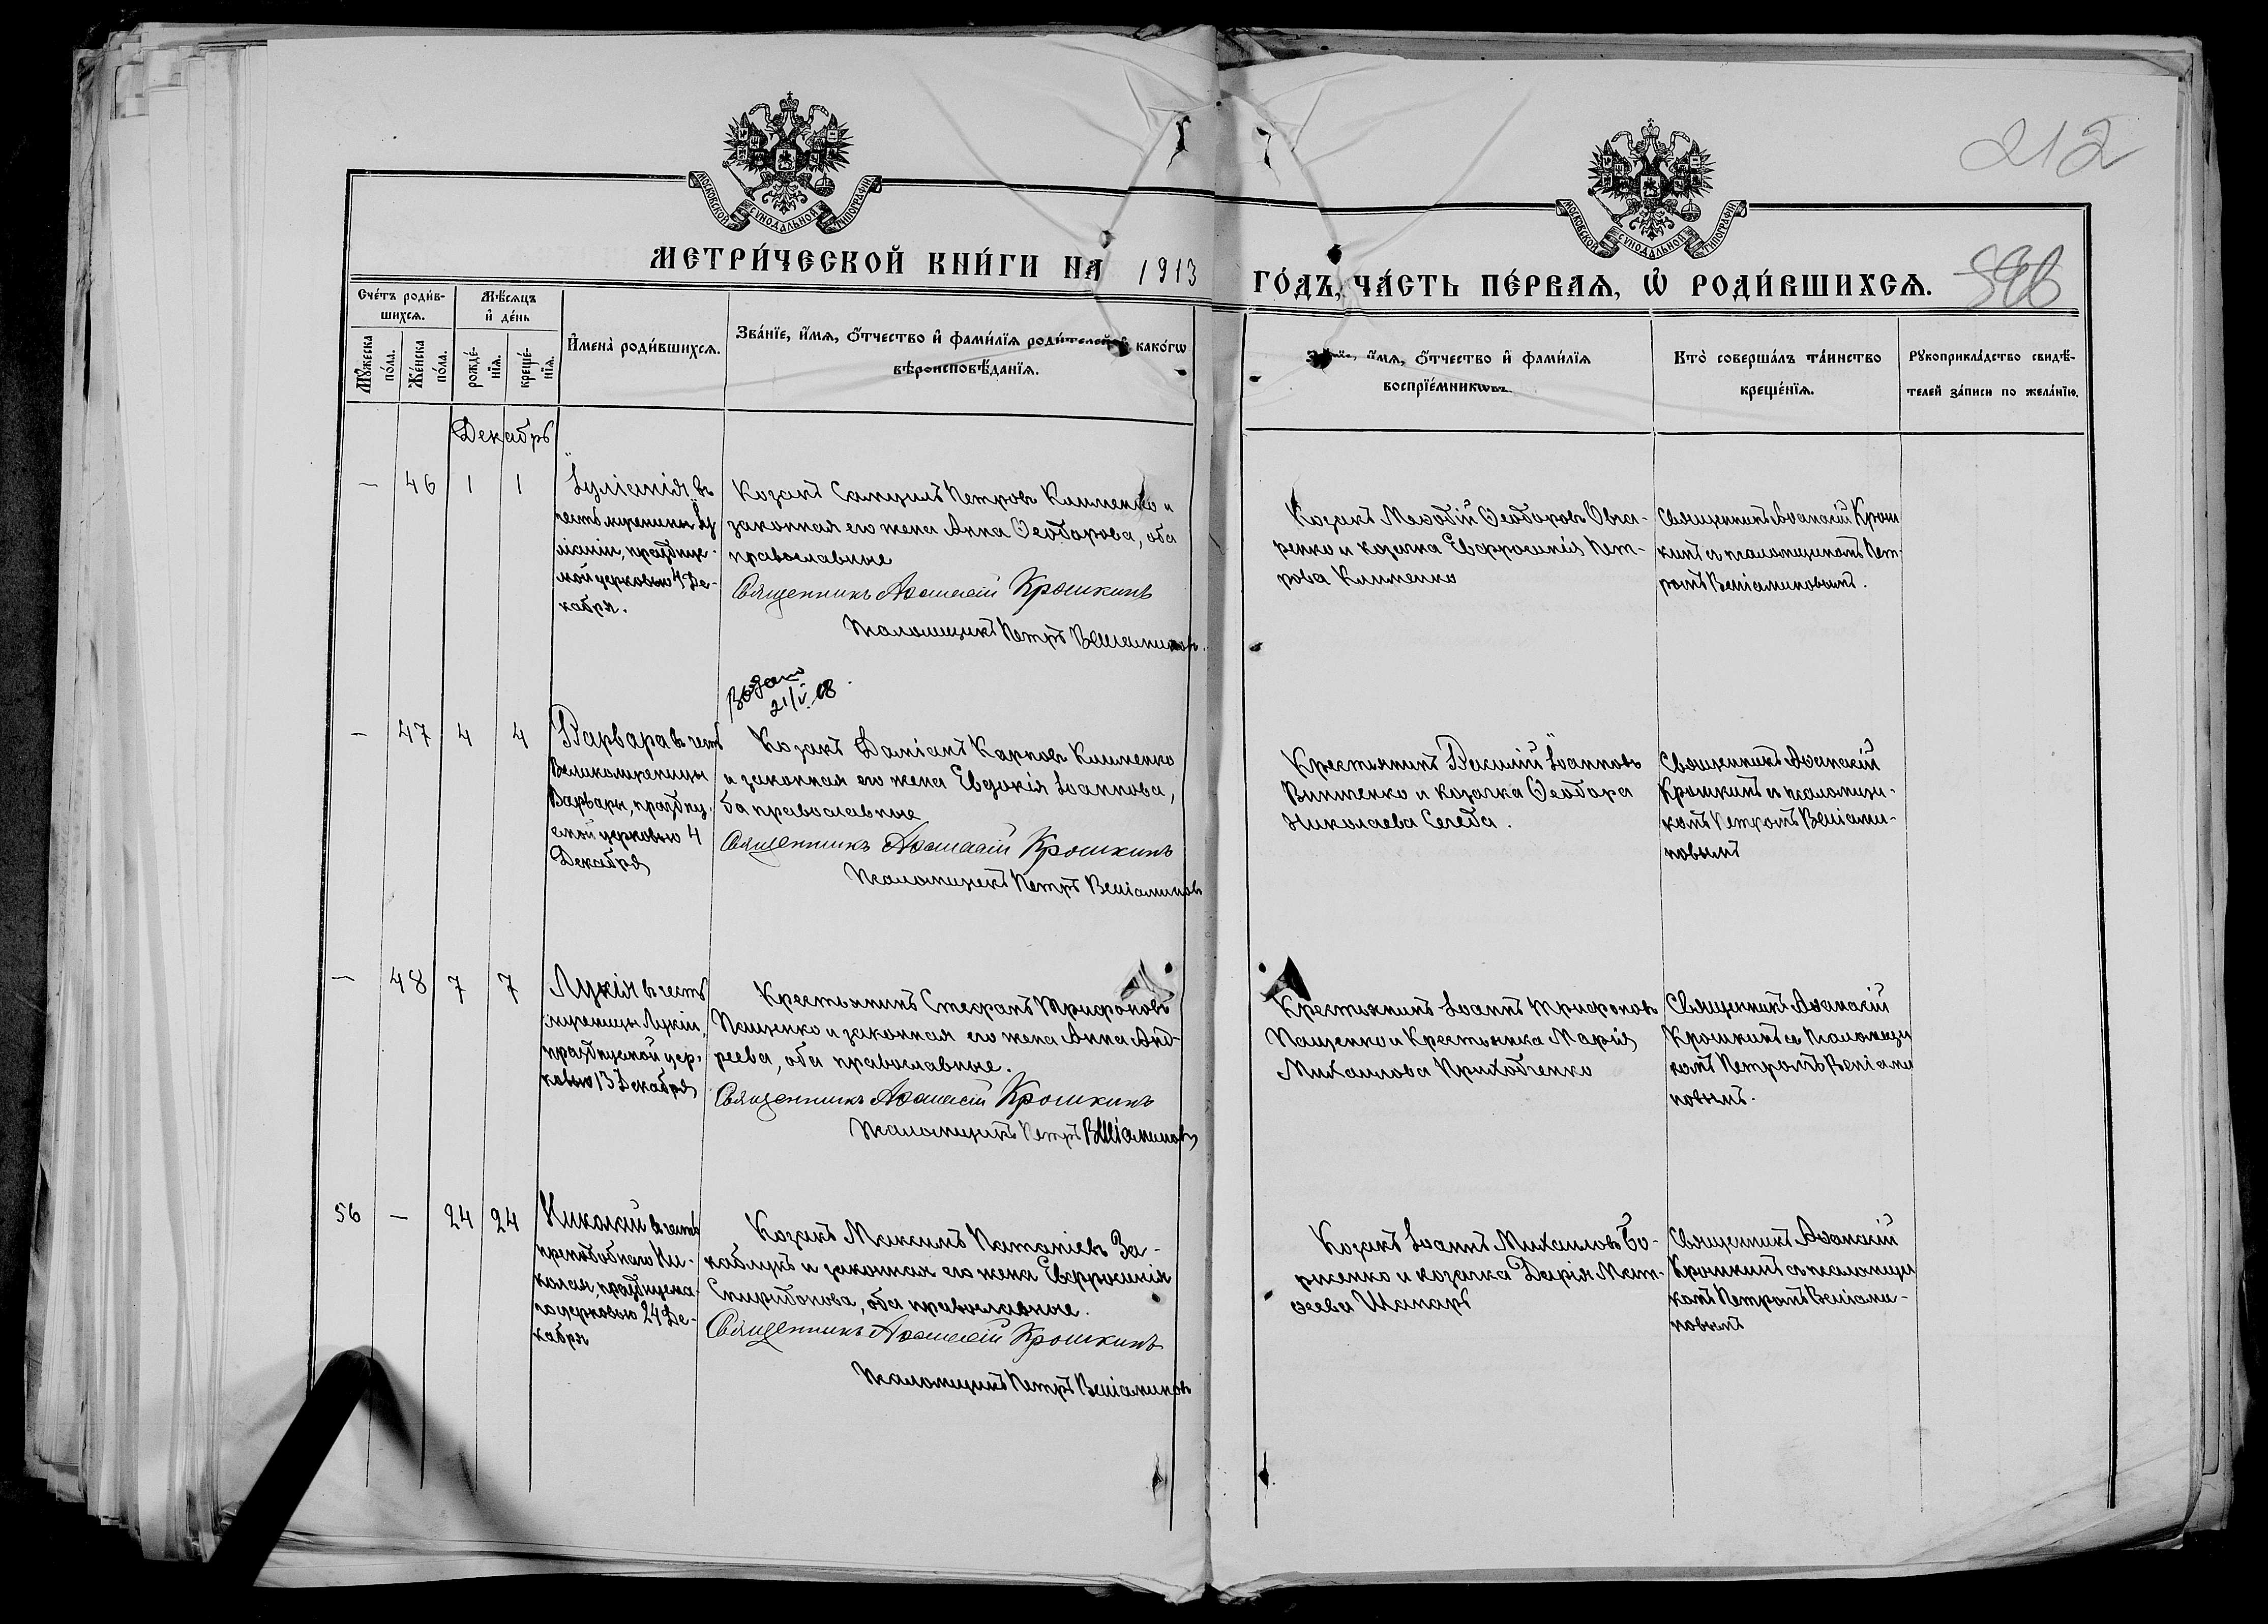 212
МОСКОВСКОЙ СѴНОДАЛЬНОЙ ТИПОГРАФІИ
МОСКОВСКОЙ СѴНОДАЛЬНОЙ ТИПОГРАФІИ
МЕТРИ́ЧЕСКОЙ КНИ́ГИ НА 1913
ГО́ДЪ, ЧА́СТЬ ПЕ́РВАЯ, Ѡ҆ РОДИ́ВШИХСЯ.
Сче́тъ роди́в-
шихся.
Мѣ́сяцъ
и҆ де́нь
Мꙋ́жеска по́ла.
Же́нска по́ла.
рожде́-нїя.
креще́-нїя.
И҆мена̀ роди́вшихся.
Зва́нїе, и҆́мя, ѻ҆́тчество и҆ фами́лїя роди́телей, и҆ како́гѡ
вѣроисповѣ́данїя.
Зва́нїе, и҆́мя, ѻ҆́тчество и҆ фами́лїя
воспрїе́мникѡвъ.
Кто̀ соверша́лъ та́инство
креще́нїя.
Рꙋкоприкла́дство свидѣ́-
телей за́писи по жела́нїю.
Декабрь
— 46 1 1
Іуліанія въ
честь мученицы Іу
ліаніи, празднуе-
мой церковью 4 Де-
кабря.
Козакъ Самуилъ Петровъ Клименко и
законная его жена Анна Ѳеодорова, оба
православные
Священникъ Аѳанасій Крошкинъ
Псаломщикъ Петръ Веніаминовъ.
Козакъ Меѳодій Ѳеодоровъ Овча-
ренко и козачка Евфросинія Пет-
рова Клименко
Священникъ Аѳанасій Крош
кинъ съ псаломщикомъ Пет-
ромъ Веніаминовымъ.
Выдано
21/V 18.
— 47 4 4
Варвара въ честь
Великомученицы
Варвары, праздну-
емой церковью 4
Декабря
Козакъ Даміанъ Карповъ Клименко
и законная его жена Евдокія Іоаннова,
ба православные
Священникъ Аѳанасій Крошкинъ
Псаломщикъ Петръ Веніаминовъ
Крестьянинъ Василій Іоанновъ
Винтенко и козачка Ѳеодора
Николаева Середа.
Священникъ Аѳанасій
Крошкинъ съ псаломщи-
комъ Петромъ Веніами-
новымъ
— 48 7 7
Лукія въ честь
мученицы Лукіи,
празднуемой цер-
ковью 13 Декабря
Крестьянинъ Стефанъ Трифоновъ
Пащенко и законная его жена Анна Анд-
реева, оба православные.
Священникъ Аѳанасій Крошкинъ
Псаломщикъ Петръ Веніаминовъ
Крестьянинъ Іоаннъ Трифоновъ
Пащенко и Крестьянка Марія
Михаилова Приходченко
Священникъ Аѳанасій
Крошкинъ съ Псаломщи
комъ Петромъ Веніами
новымъ.
56 — 24 24
Николай въ честь
преподобнаго Ни-
колая, празднуема-
го церковью 24 Де-
кабря
Козакъ Максимъ Наѳаніевъ За-
каблукъ и законная его жена Евфросинія
Спиридонова, оба православные.
Священникъ Аѳанасій Крошкинъ
Псаломщикъ Петръ Веніаминовъ
Козакъ Іоаннъ Михаиловъ Бо-
рисенко и козачка Дарія Мат-
ѳеева Шапаръ
Священникъ Аѳанасій
Крошкинъ съ псаломщи
комъ Петромъ Веніами-
новымъ